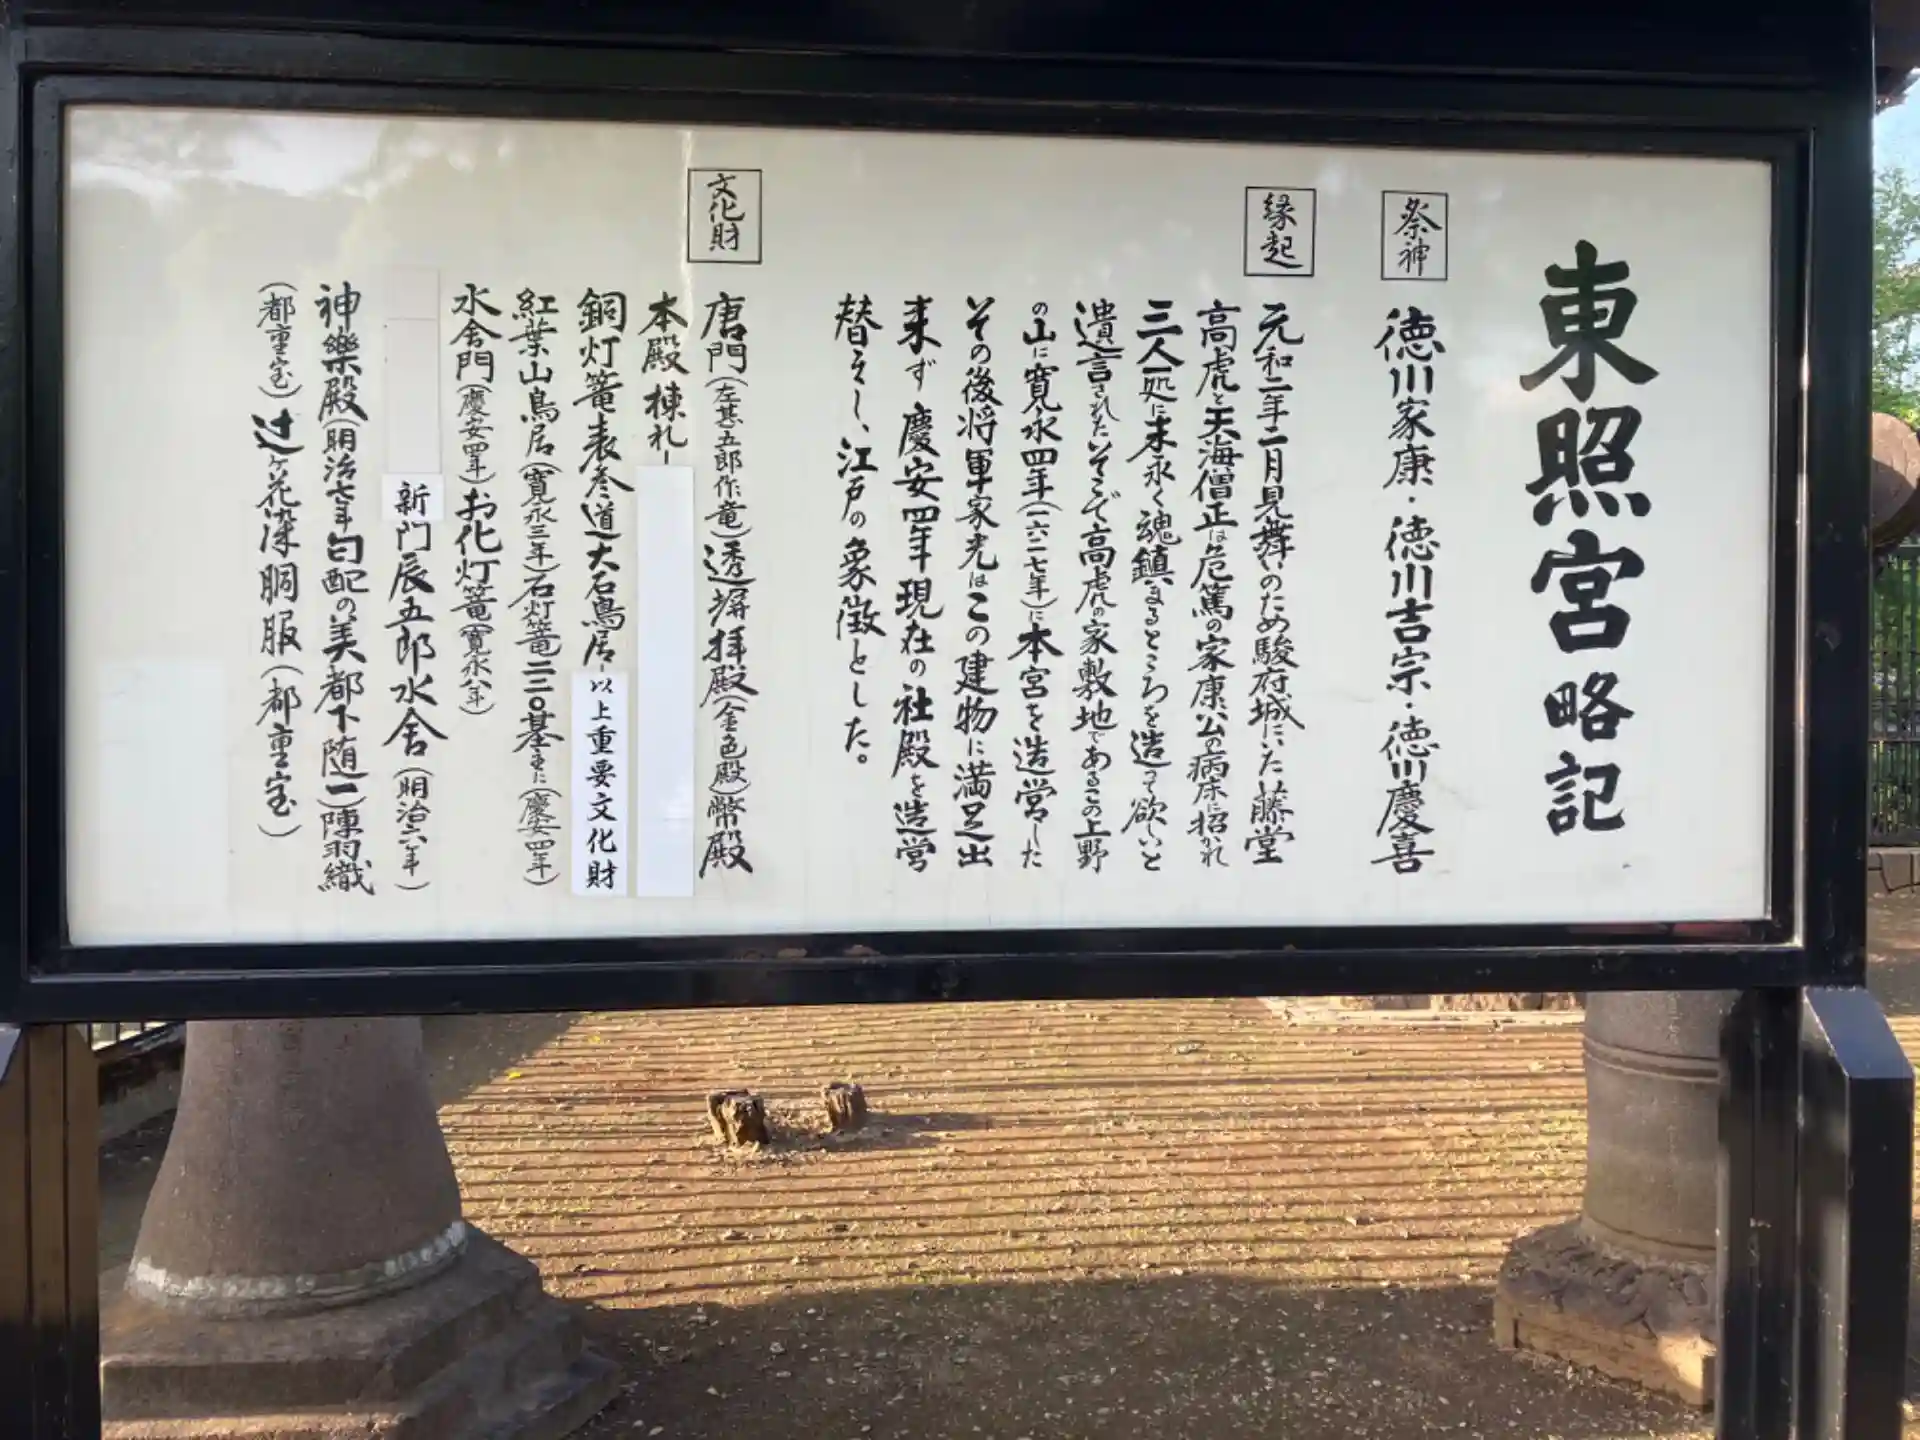 東照宮略記
祭神
徳川家康・徳川吉宗・徳川慶喜
縁起
元和二年二月見舞いのため駿府城にいた藤堂
高虎と天海僧正は危篤の家康公の病床に招かれ
三人一処に末永く魂鎮まるところを造って欲しいと
遺言されたそこで高虎の家敷地であるこの上野
の山に寛永四年(一六二七年)に本宮を造営した
その後将軍家光はこの建物に満足出
来ず慶安四年現在の社殿を造営
替えし、江戸の象徴とした。
文化財
唐門(左甚五郎作竜)透塀拝殿(金色殿)幣殿
本殿棟札
銅灯篭表参道大石鳥居以上重要文化財
紅葉山鳥居(寛永三年)石灯篭二二〇基主に(慶安四年)
水舎門(慶安四年)お化灯篭(寛永八年)
新門辰五郎水舎(明治六年)
神樂殿(明治七年勾配の美都下随一)陳羽織
(都重宝)辻ヶ花染胴服(都重宝)